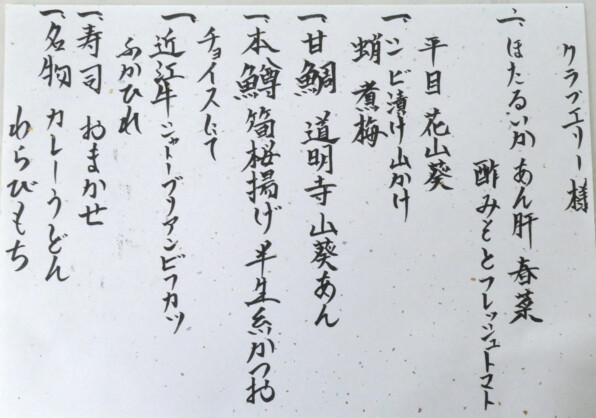 クラブエリー様
一、ほたるいか あん肝 春菜
酢みそとフレッシュトマト
平目 花山葵
一、シビ漬け山かけ
蛸 煮梅
一、甘鯛 道明寺 山葵あん
一、本鱒筍桜揚げ 半生糸かつお
チョイスにて
一、近江牛シャトーブリアンビフカツ
ふかひれ
一、寿司 おまかせ
一、名物 カレーうどん
わらびもち